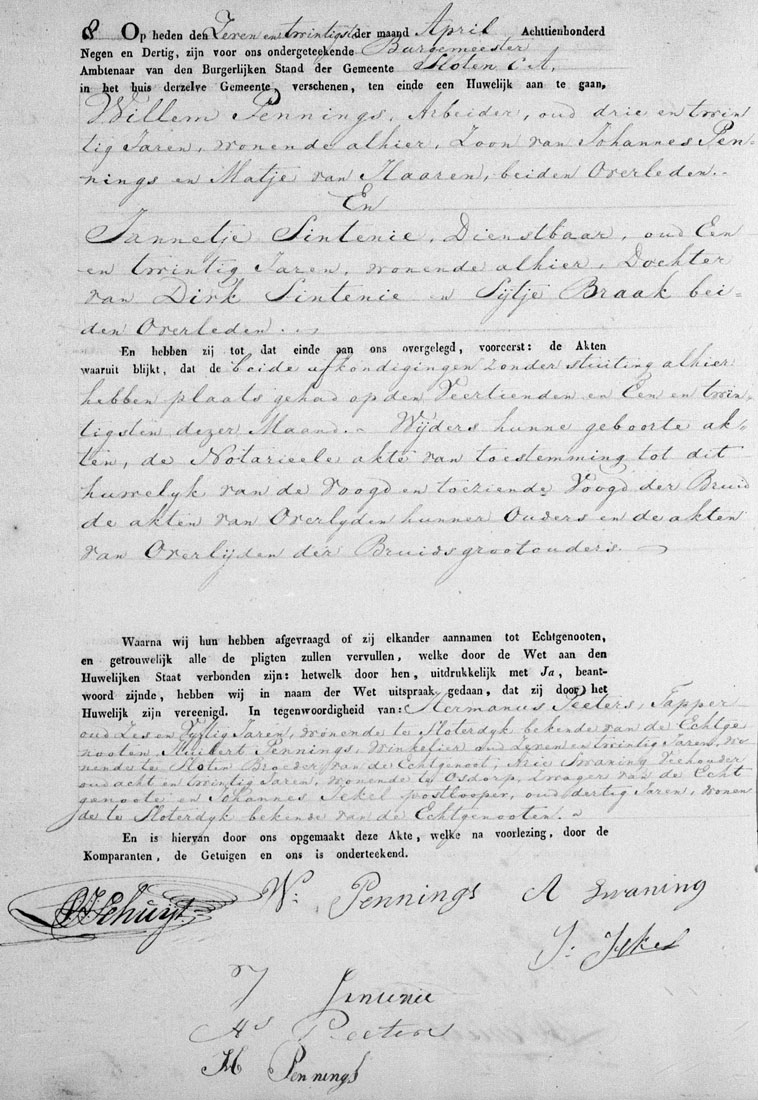 8 Op heden den Zeven en twintigst der maand April Achttienhonderd
Negen en Dertig, zijn voor ons ondergeteekende Burgemeester
Ambtenaar van den Burgerlijken Stand der Gemeente Sloten C A,
in het huis derzelve Gemeente, verschenen, ten einde een Huwelijk aan te gaan,
Willem Pennings, Arbeider, oud drie en twin
tig Jaren, wonende alhier, Zoon van Johannes Pen-
nings en Matje van Haaren, beiden Overleden.-
En
Jannetje Sintenie, Dienstbaar, oud Een
en twintig Jaren, wonende alhier, Dochter
van Dirk Sintenie en Sijtje Braak bei-
den Overleden.
En hebben zij tot dat einde aan ons overgelegd, voorcerst: de Akten
waaruit blijkt, dat de beide afkondigingen zonder stuiting alhier
hebben plaats gehad op den Veertienden en Een en twin-
tigsten dezer Maand.- Wijders hunne geboorte ak-
ten, de Notarieele akte van toestemming tot dit
huwelyk van de Voogd en toeziende Voogd der Bruid
de akten van Overlyden hunner Ouders en de akten
van Overlijden der Bruidsgrootouders.
Waarna wij hun hebben afgevraagd of zij elkander aannamen tot Echtgenooten,
en getrouwelijk alle de pligten zullen vervullen, welke door de Wet aan den
Huwelijken Staat verbonden zijn: hetwelk door hen, uitdrukkelijk met Ja, beant-
woord zijnde, hebben wij in naam der Wet uitspraak gedaan, dat zij door het
Huwelijk zijn vereenigd. In tegenwoordigheid van: Hermanus Peeters, Tapper
oud Zes en Vyftig Jaren, wonende te Sloterdyk bekende van de Echtge
nooten Huibert Pennings, Winkelier oud Zeven en twintig Jaren, wo-
nende te Sloten Broeder van de Echtgenoot; Arie Swaning Veehouder
oud acht en twintig Jaren, wonende te Osdorp, Zwager van de Echt
genoote en Johannes Jekel postlooper, oud dertig Jaren, wonen
de te Sloterdyk bekende van de Echtgenooten.
En is hiervan door ons opgemaakt deze Akte, welke na voorlezing, door de
Komparanten, de Getuigen en ons is onderteekend.
W: Pennings A Swaning
J: Jekel
J Sintenie
Hs Peeters
H Pennings